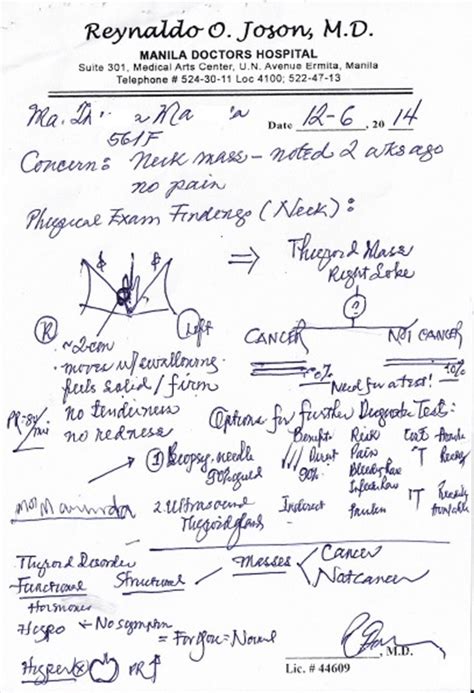 Reynaldo O. Joson, M.D.
MANILA DOCTORS HOSPITAL
Suite 301, Medical Arts Center, U.N. Avenue Ermita, Manila
Telephone # 524-30-11 Loc 4100; 522-47-13
Ma. Th
Date 12-6, 2014
56/F
Concern: Neck mass - noted 2 wks ago
no pain
Physical Exam Findings (Neck):
⇒ Thyroid Mass
Right Lobe
?
R Left
CANCER NOT CANCER
~2cm
moves w/ swallowing
feels solid / firm
Need for a test!
no tenderness
PR=84/min
no redness
Options for further Diagnostic Tests:
Benefit Risk Cost
1 Biopsy, needle Direct Pain
90% Bleeding
2. Ultrasound Indirect
Thyroid gland
Available
Thyroid Disorder
Functional Structural Masses Cancer
Not cancer
Hormones
Hypo ← No symptom
= For you = Normal
Hyper PR
, M.D.
Lic. # 44609